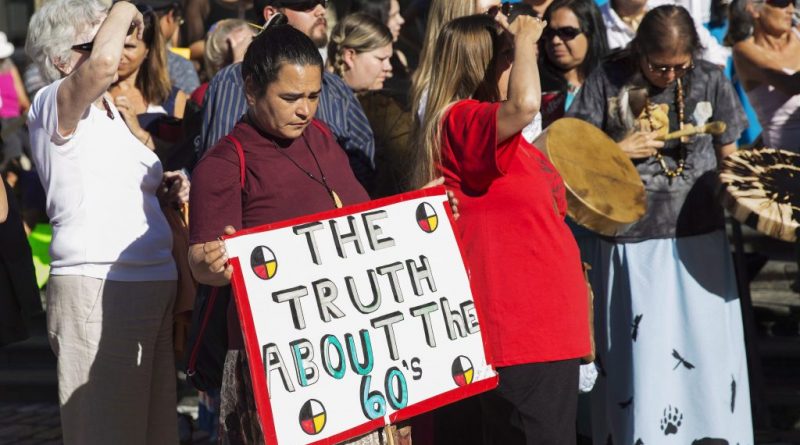 THE
TRUTH
ABOUT THE
60's